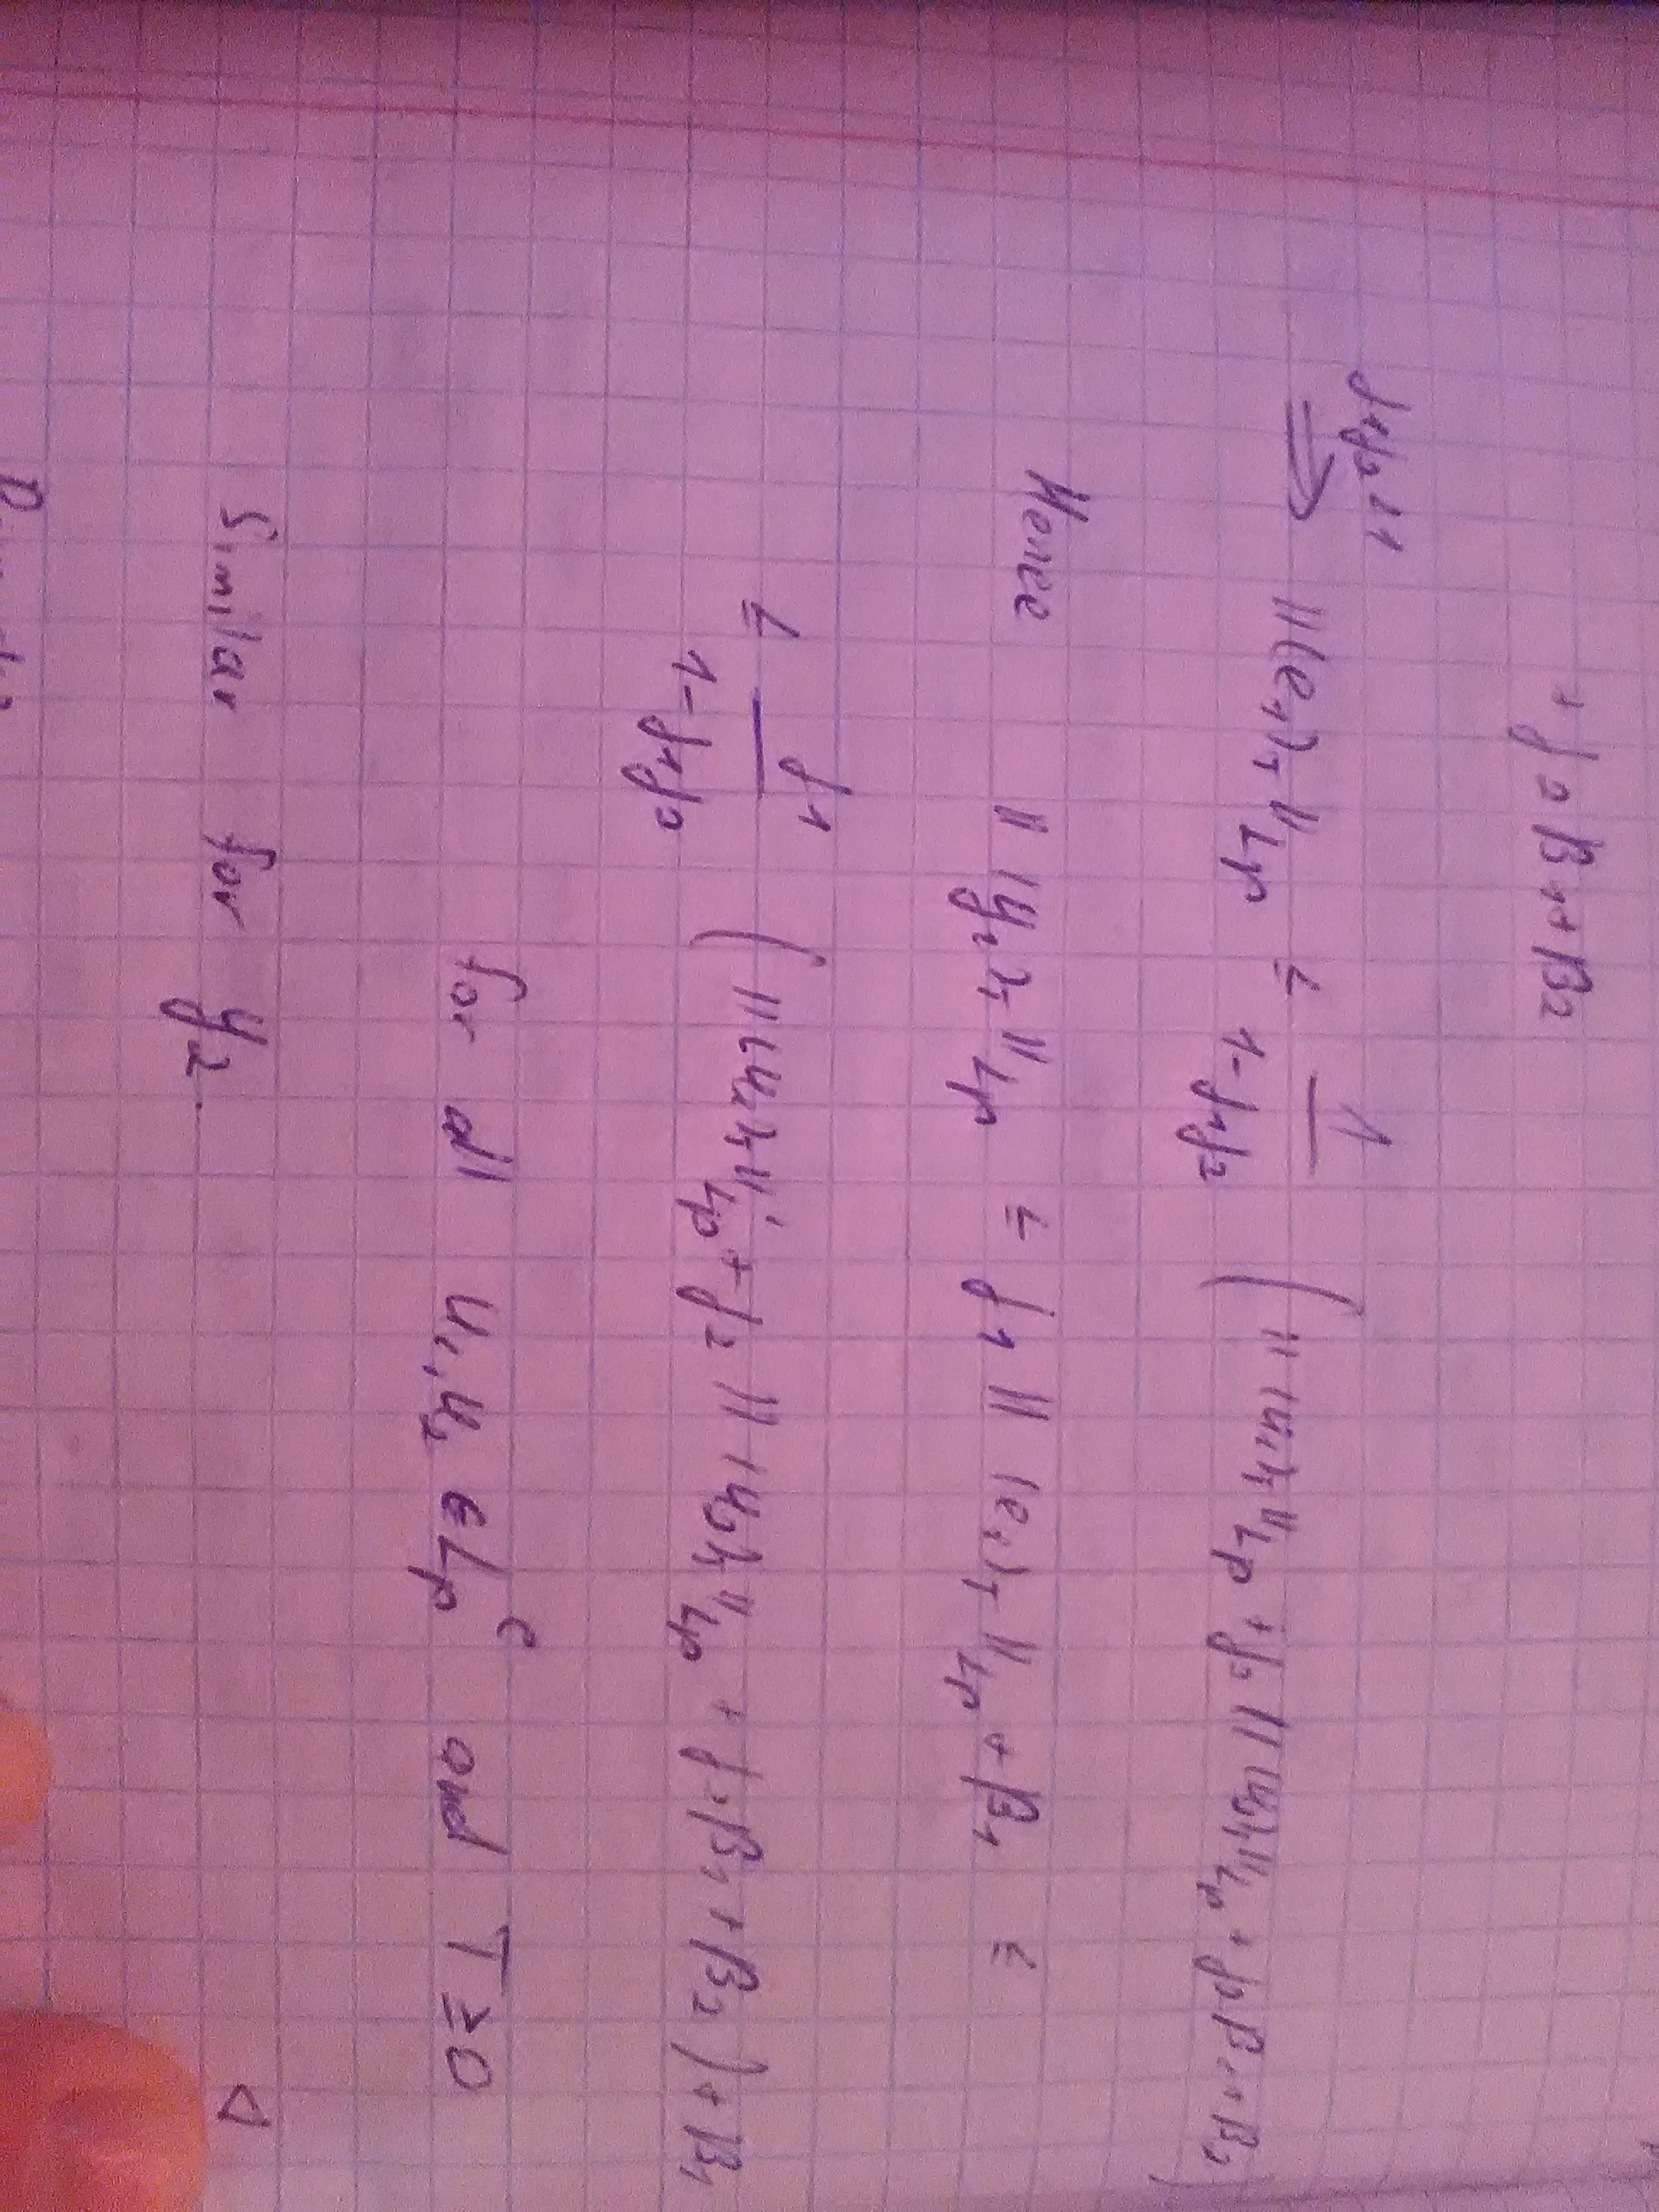 + γ₂β₁+β₂
γ₁γ₂<1
⟹ ||(e₁)_T||_Lp ≤ 1/(1-γ₁γ₂) (||(u₁)_T||_Lp + γ₂ ||(u₂)_T||_Lp + γ₂β₁+β₂)
Hence ||(y₁)_T||_Lp ≤ γ₁ ||(e₁)_T||_Lp + β₁ ≤
≤ γ₁/(1-γ₁γ₂) (||(u₁)_T||_Lp + γ₂ ||(u₂)_T||_Lp + γ₂β₁+β₂)+β₁
for all u₁,u₂ ∈ L_p^e and T≥0
Similar for y₂.